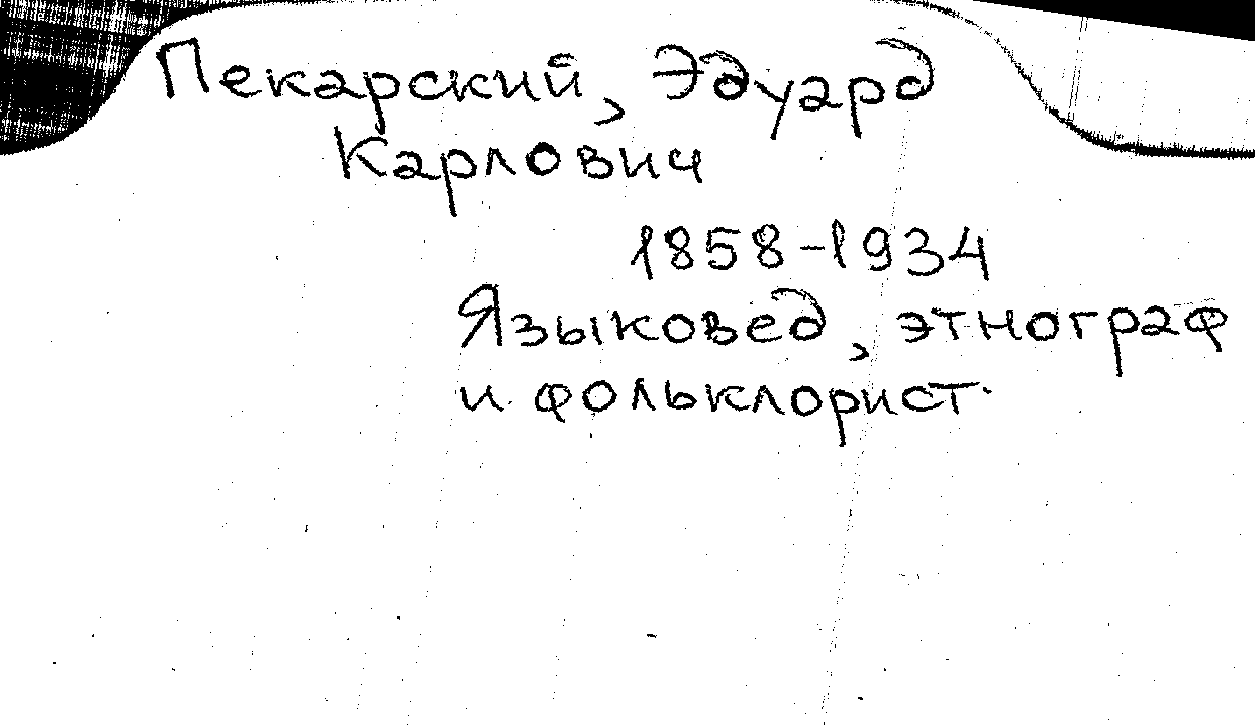 Пекарский, Эдуард
Карлович
1858-1934
Языковед, этнограф
и фольклорист.